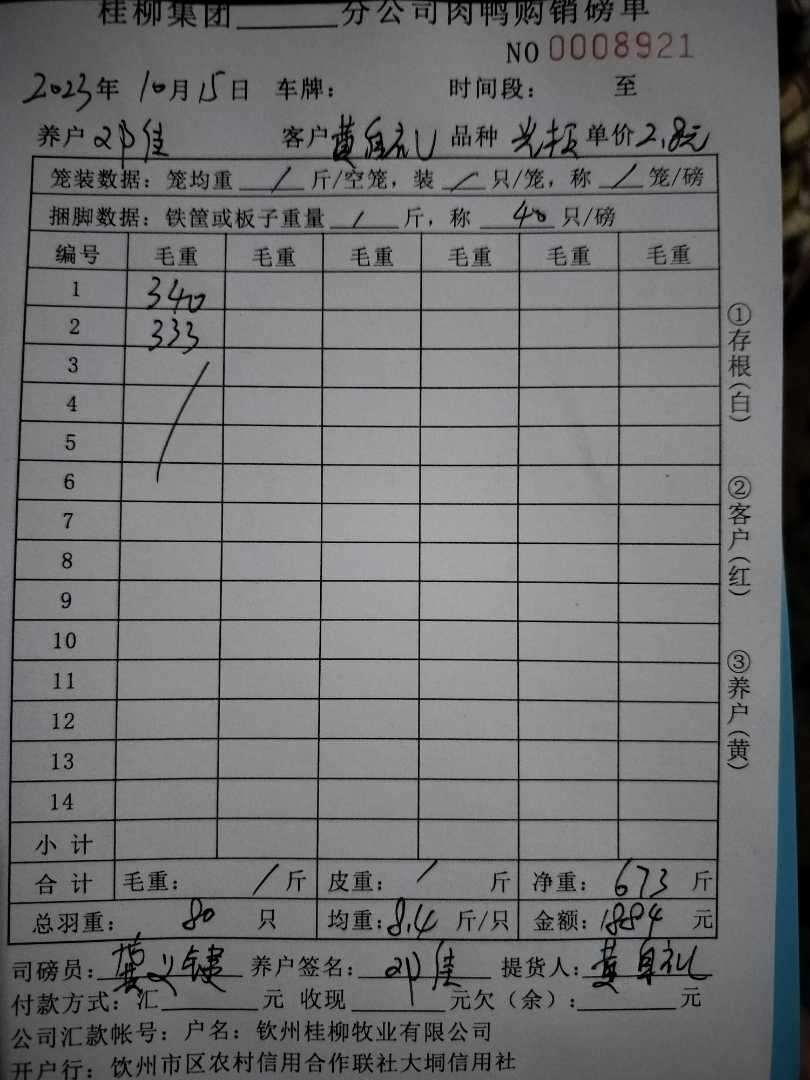 桂柳集团______分公司肉鸭购销磅单
NO 0008921
2023年 10月15日 车牌: 时间段: 至
养户 邓佳 客户 黄自礼 品种 光板 单价 2.8元
笼装数据:笼均重 / 斤/空笼,装 / 只/笼,称 / 笼/磅
捆脚数据:铁筐或板子重量 / 斤,称 40 只/磅
编号 毛重 毛重 毛重 毛重 毛重 毛重
1 340
2 333
3 /
4
5
6
7
8
9
10
11
12
13
14
小计
合计 毛重: / 斤 皮重: / 斤 净重: 673 斤
总羽重: 80 只 均重: 8.4 斤/只 金额: 1884 元
司磅员: 龚义键 养户签名: 邓佳 提货人: 黄自礼
付款方式:汇______元 收现______元欠(余):______元
公司汇款帐号:户名:钦州桂柳牧业有限公司
开户行:饮州市区农村信用合作联社大垌信用社
①存根(白)
②客户(红)
③养户(黄)